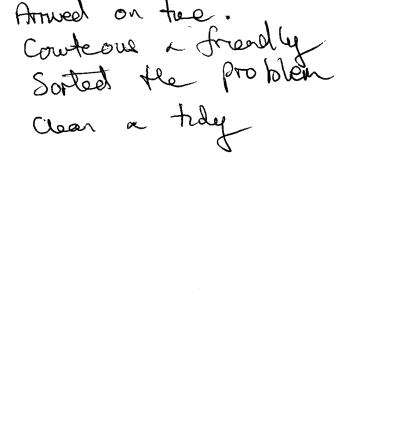 Arrived on time.
Courteous & friendly
Sorted the problem
Clean & tidy